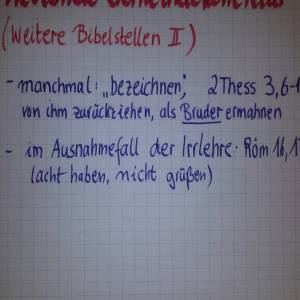 (Weitere Bibelstellen II)
- manchmal: „bezeichnen", 2Thess 3,6-
von ihm zurückziehen, als Bruder ermahnen
- im Ausnahmefall der Irrlehre: Röm 16,1
(acht haben, nicht grüßen)